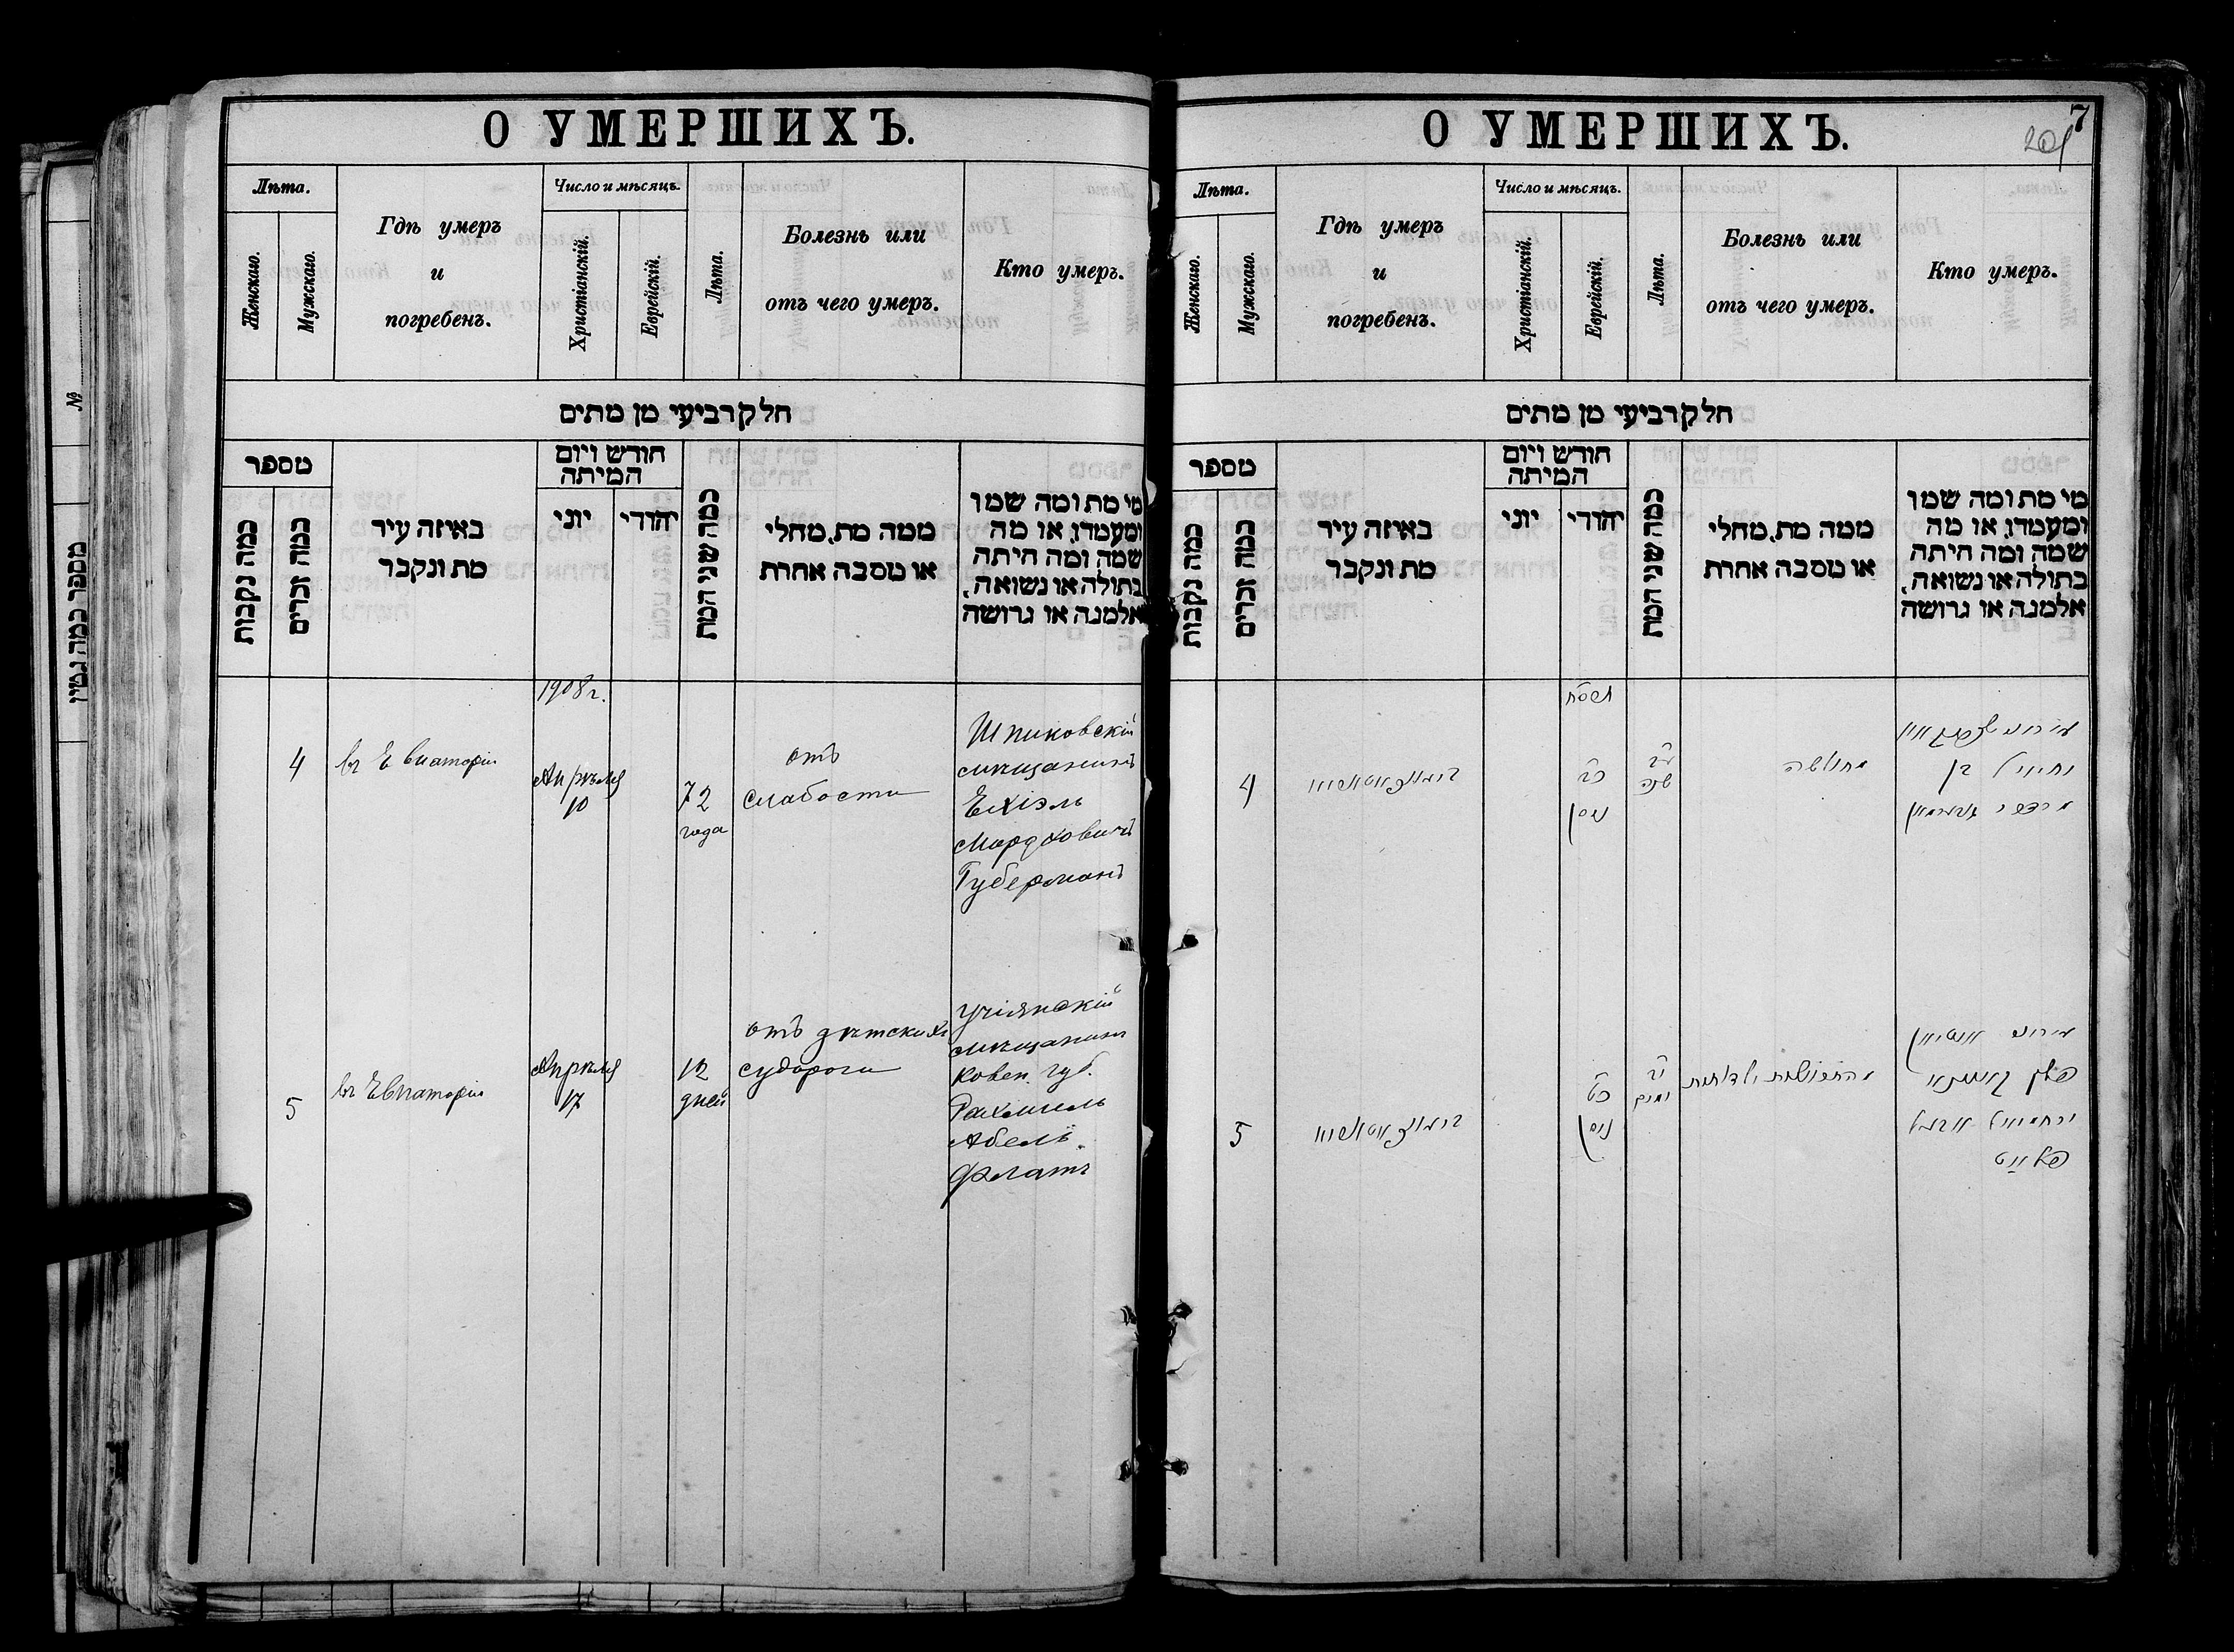 О УМЕРШИХЪ.
Лѣта.
Женскаго.
Мужскаго.
Гдѣ умеръ
и
погребенъ.
Число и мѣсяцъ.
Христіанскій.
Еврейскій.
Лѣта.
Болезнь или
отъ чего умеръ.
Кто умеръ.
חלק רביעי מן מתים
מספר
כמה נקבות
כמה זכרים
באיזה עיר
מת ונקבר
חודש ויום
המיתה
יוני
יהודי
כמה שני המת
ממה מת, מחלי
או מסבה אחרת
מי מת ומה שמו
ומעמדו, או מה
שמה ומה היתה
בתולה או נשואה,
אלמנה או גרושה
1908 г.
4
въ Евпаторіи
Апрѣля
10
72
года
отъ
слабости
Шпиковскій
мѣщанинъ
Ехіэль
Мордковичъ
Губерманъ
5
въ Евпаторіи
Апрѣля
17
12
дней
отъ дѣтскихъ
судороги
мѣщанинъ
Ковен. губ.
Рахміель
Абель
Флатъ
О УМЕРШИХЪ.
7
201
Лѣта.
Женскаго.
Мужскаго.
Гдѣ умеръ
и
погребенъ.
Число и мѣсяцъ.
Христіанскій.
Еврейскій.
Лѣта.
Болезнь или
отъ чего умеръ.
Кто умеръ.
חלק רביעי מן מתים
מספר
כמה נקבות
כמה זכרים
באיזה עיר
מת ונקבר
חודש ויום
המיתה
יוני
יהודי
כמה שני המת
ממה מת, מחלי
או מסבה אחרת
מי מת ומה שמו
ומעמדו, או מה
שמה ומה היתה
בתולה או נשואה,
אלמנה או גרושה
תרסח
4
כב
ניסן
עב
שנה
מחולשה
יחיאל בן
מרדכי גוברמאן
5
כט
ניסן
יב
ימים
ירחמיאל אבעל
פלאט
№
מספר כמה גטין